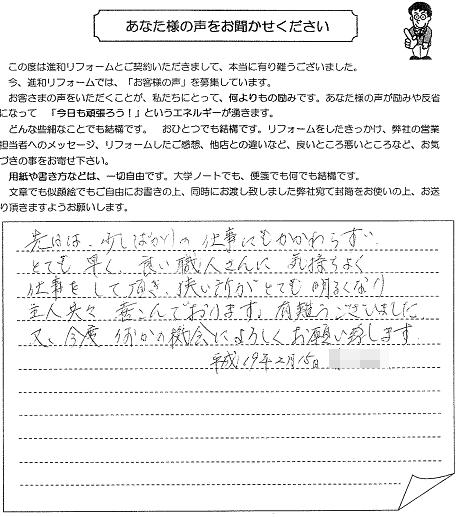 あなた様の声をお聞かせください
この度は進和リフォームとご契約いただきまして、本当に有り難うございました。
今、進和リフォームでは、「お客様の声」を募集しています。
お客さまの声をいただくことが、私たちにとって、何よりもの励みです。あなた様の声が励みや反省
になって 「今日も頑張ろう！」というエネルギーが湧きます。
どんな些細なことでも結構です。 おひとつでも結構です。リフォームをしたきっかけ、弊社の営業
担当者へのメッセージ、リフォームしたご感想、他店との違いなど、良いところ悪いところなど、お気
づきの事をお寄せ下さい。
用紙や書き方などは、一切自由です。大学ノートでも、便箋でも何でも結構です。
文章でも似顔絵でもご自由にお書きの上、同時にお渡し致しました弊社宛て封筒をお使いの上、お送
り頂きますようお願いします。
先日は、少しばかりの仕事にもかかわらず、
とても早く、良い職人さんに気持ちよく
仕事をして頂き、狭い所がとても明るくなり
主人共々喜こんでおります。有難うございました
又、今度何かの機会によろしくお願い致します
平成19年2月15日